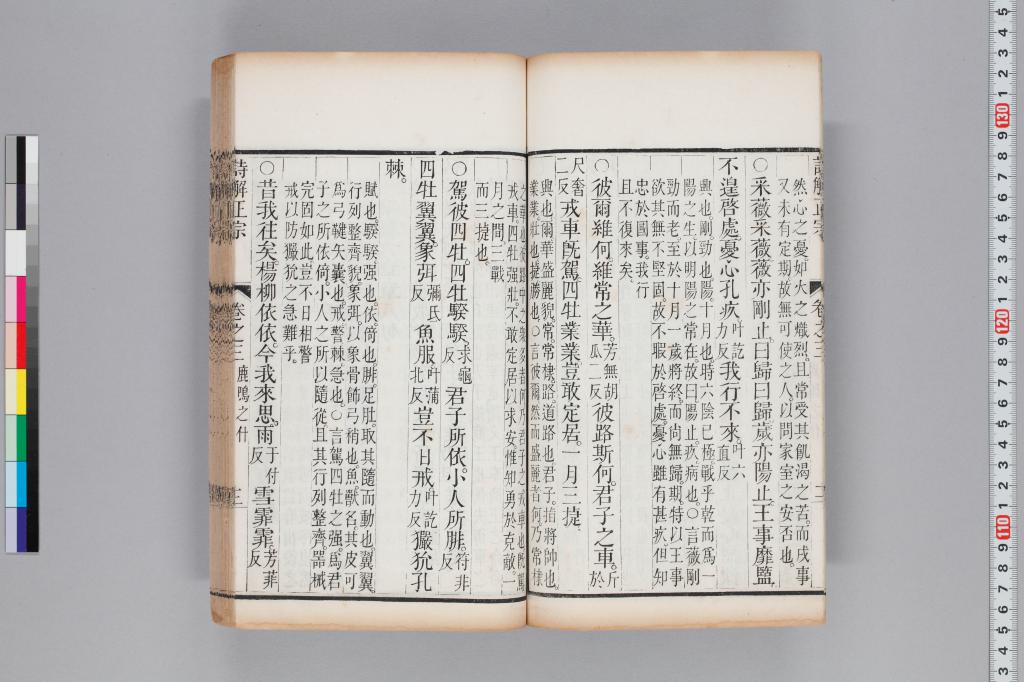 詩解正宗
卷之三
三
然心之憂如火之熾烈。且常受其飢渴之苦。而戌事
又未有定期。故無可使之人。以問家室之安否也。
○采薇采薇薇亦剛止。曰歸曰歸歲亦陽止。王事靡盬
不遑啓處憂心孔疚叶訖力反我行不來叶六直反
興也。剛勁也。陽十月也。時六陰已極。戰乎乾而爲一
陽之生。以明陽之常在。故曰陽止。疚病也。○言薇剛
勁而老。至於十月一歲將終。而尚無歸期。特以王事
欲其無不堅固。故不暇於啓處。憂心雖有甚疚。但知
忠於國事。我行
且不復來矣。
○彼爾維何。維常之華。芳無胡瓜二反彼路斯何。君子之車。斤於
尺奢二反戎車旣駕。四牡業業。豈敢定居。一月三捷。
興也。爾華盛麗貌。常常棣。路道路也。君子。指將帥也。
業業壯也。捷勝也。○言彼爾然而盛麗者何。乃常棣
戎車。四牡强壯。不敢定居。以求安。惟知勇於克敵。一
月之間。三戰
而三捷也。
○駕彼四牡。四牡騤騤。求龜反君子所依。小人所腓。符非反
四牡翼翼。象弭彌氏反魚服叶蒲北反豈不日戒叶訖力反玁狁孔
棘。
賦也。騤騤强也。依倚也。腓足肚。取其隨而動也。翼翼
行列整齊貌。象弭。以象骨飾弓稍也。魚獸名。其皮可
爲弓鞬矢囊也。戒警。棘急也。○言駕四牡之强。爲君
子之所依倚。小人之所以隨從。且其行列整齊。器械
完固如此。豈不日相警
戒以防玁狁之急難乎。
○昔我往矣。楊柳依依。今我來思。雨于付反雪霏霏。芳菲反
詩解正宗
卷之三
鹿鳴之什
三